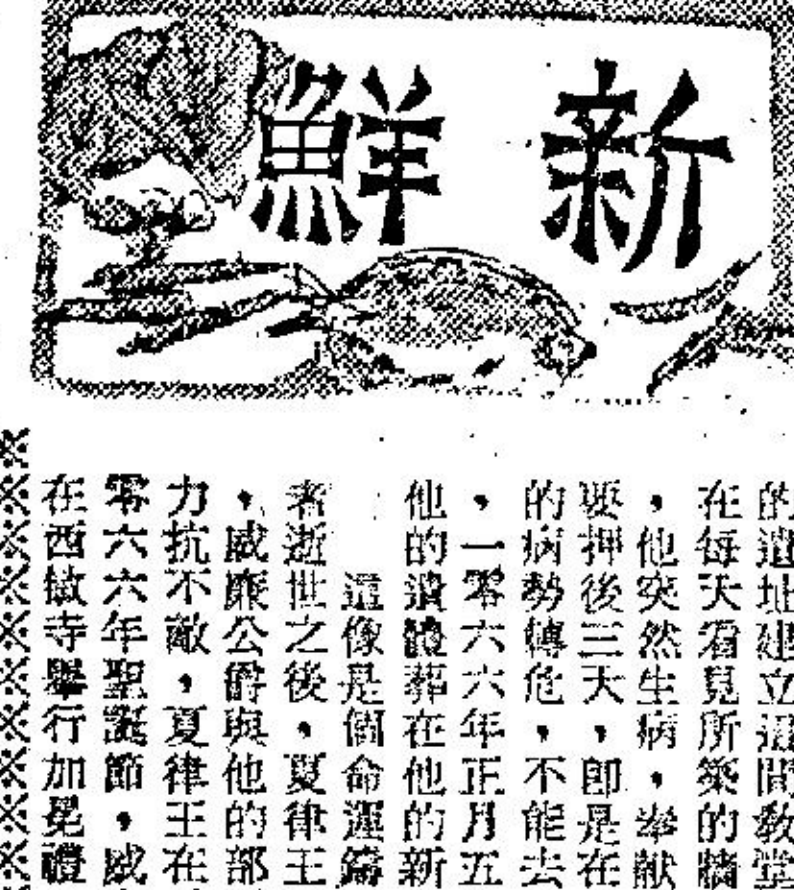 新鮮
的遺址建立這間教堂
在每天看見所築的牆
，他突然生病，奉獻
要押後三天，即是在
的病勢轉危，不能去
，一零六六年正月五
他的遺體葬在他的新
這像是個命運
者逝世之後，夏律王
，威廉公爵與他的部
力抗不敵，夏律王在
零六六年聖誕節，威
在西敏寺舉行加冕禮